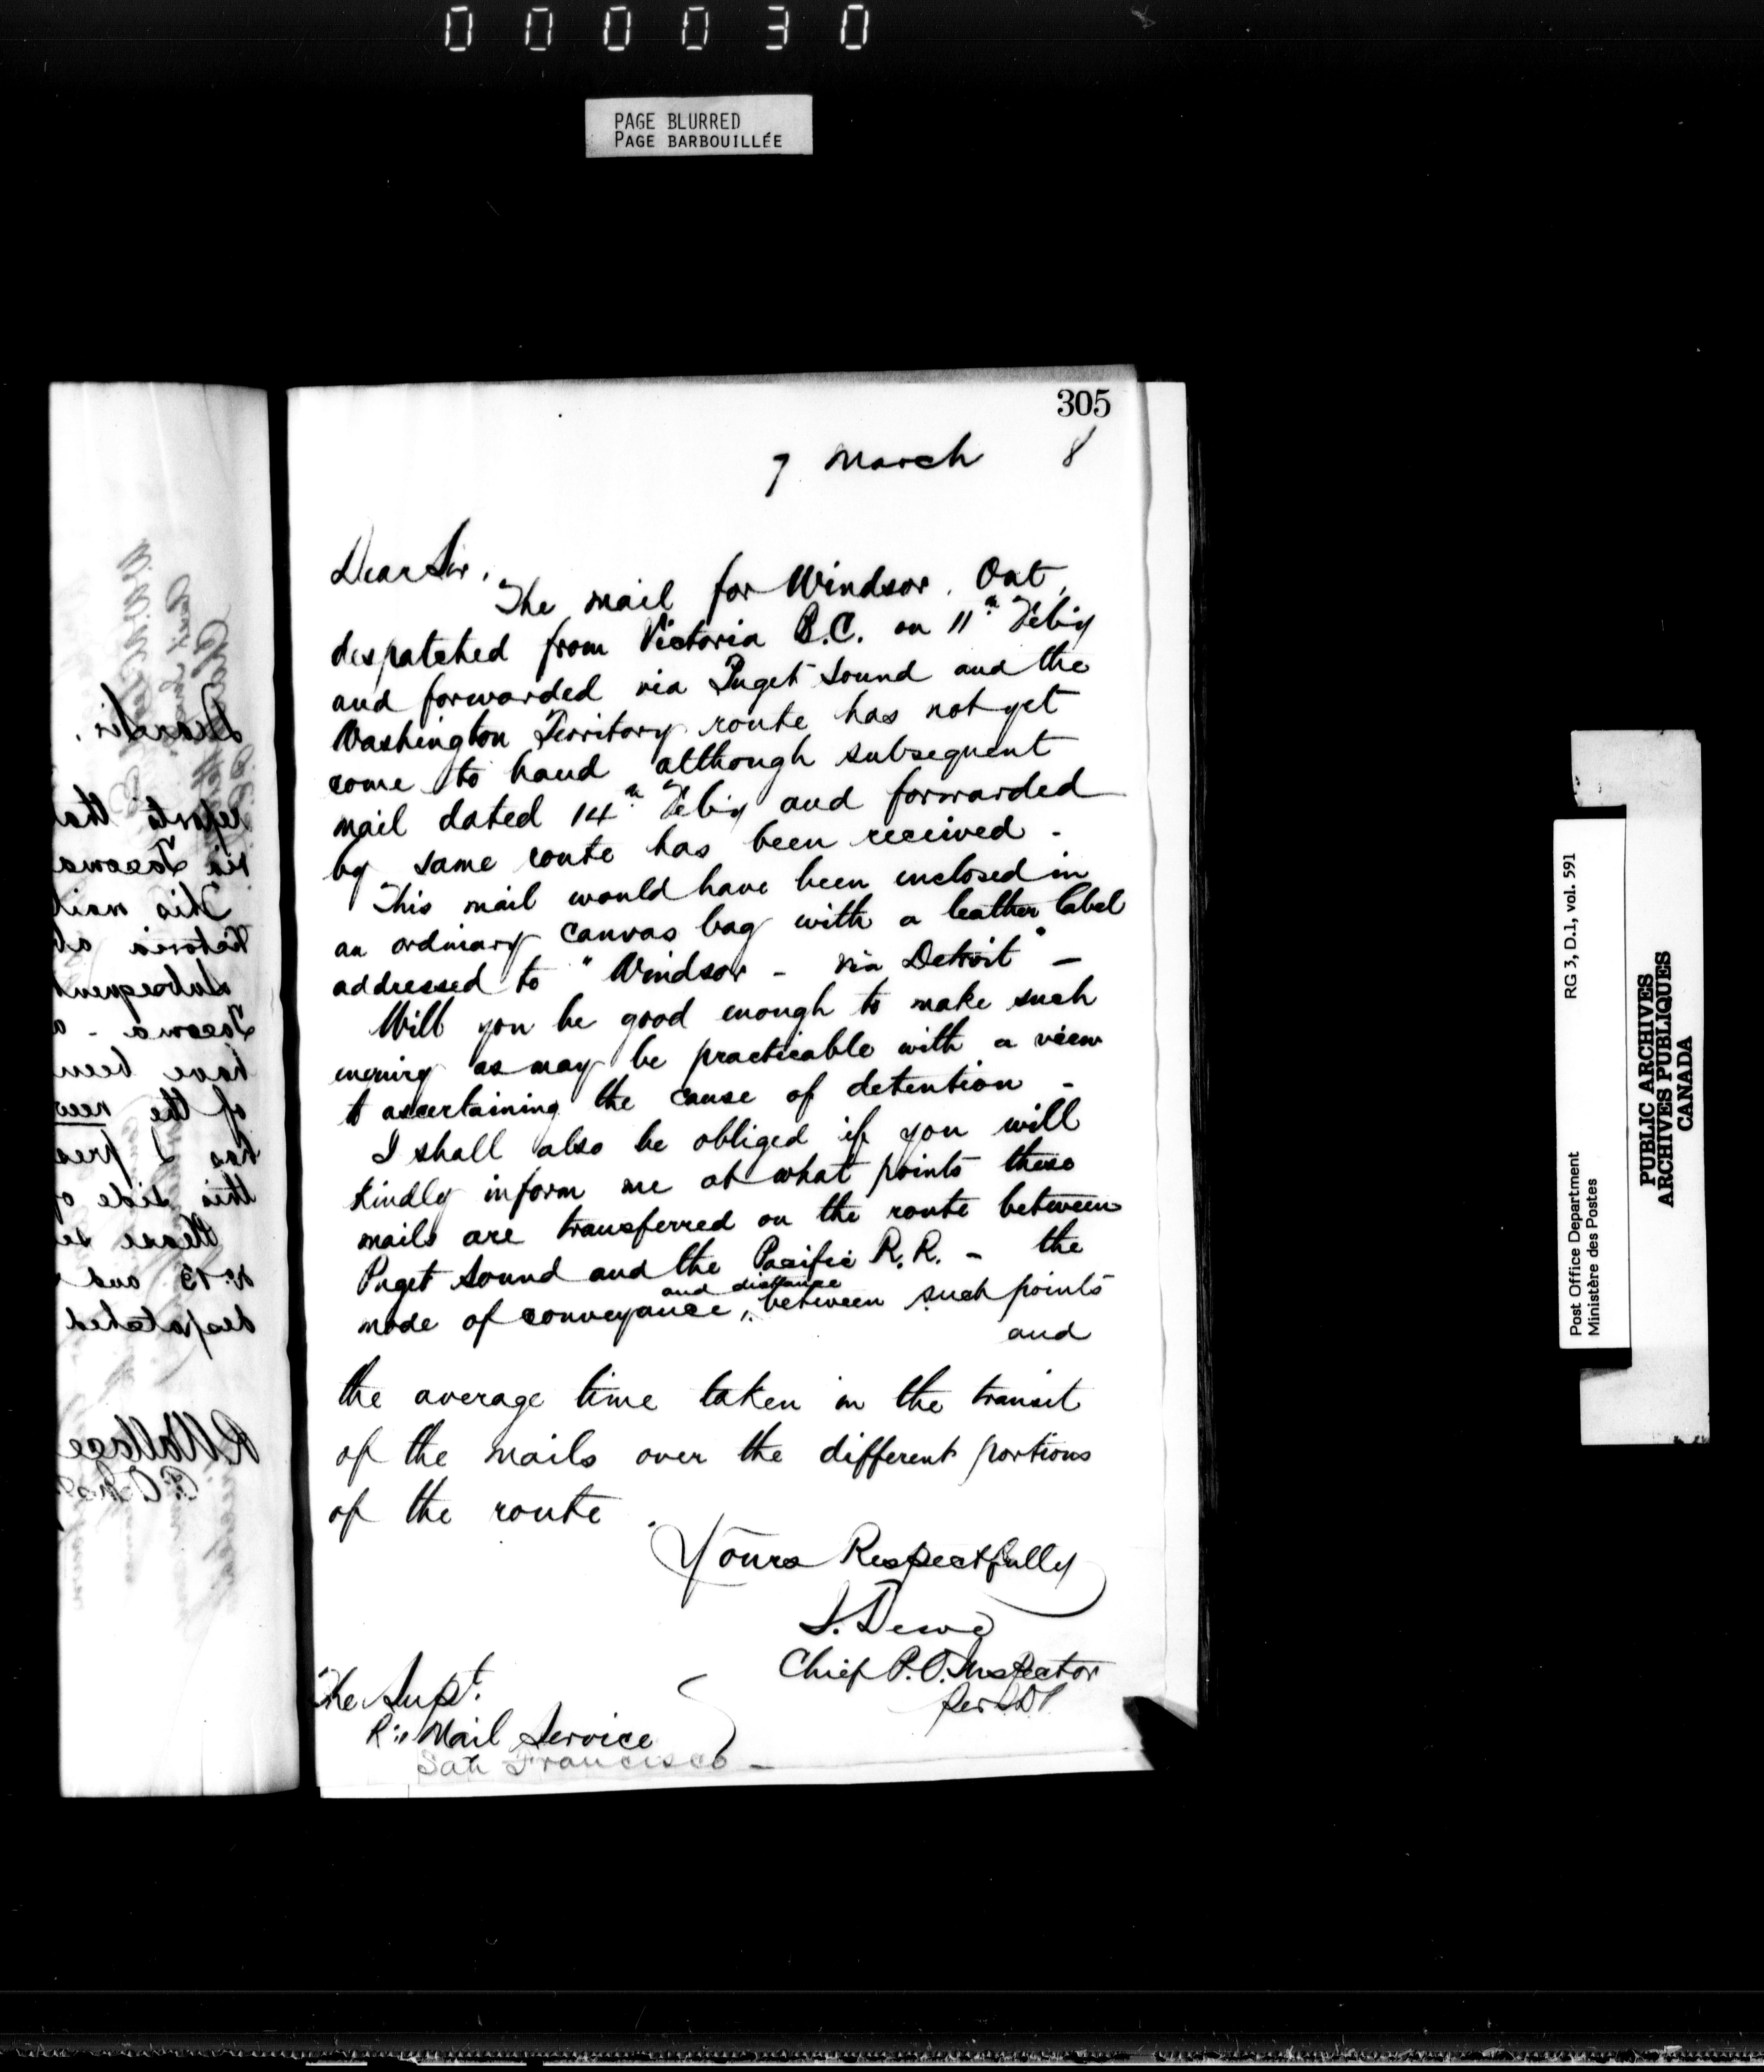 000030
PAGE BLURRED
PAGE BARBOUILLÉE
305
7 March 8
Dear Sir,
The mail for Windsor. Ont,
despatched from Victoria B.C. on 11th Feb'y
and forwarded via Puget Sound and the
Washington Territory route has not yet
come to hand although subsequent
mail dated 14th Feb'y and forwarded
by same route has been received -
This mail would have been enclosed in
an ordinary canvas bag with a leather label
addressed to "Windsor - via Detroit" -
Will you be good enough to make such
enquiry as may be practicable with a view
to ascertaining the cause of detention -
I shall also be obliged if you will
kindly inform me at what points these
mails are transferred on the route between
Puget Sound and the Pacific R.R. - the
and distance
mode of conveyance, between such points
and
the average time taken in the transit
of the mails over the different portions
of the route.
Yours Respectfully
J. Dewe
Chief P.O. Inspector
The Supt.
Ry Mail Service
San Francisco -
Dear Sir,
reports tha
via Tacoma
This mail
Victoria a
subsequent
Tacoma - a
have been
of the new
has I pres
this side o
Please se
No 13 and
despatched
R Wallace
RG 3, D.1, vol. 591
Post Office Department
Ministère des Postes
PUBLIC ARCHIVES
ARCHIVES PUBLIQUES
CANADA